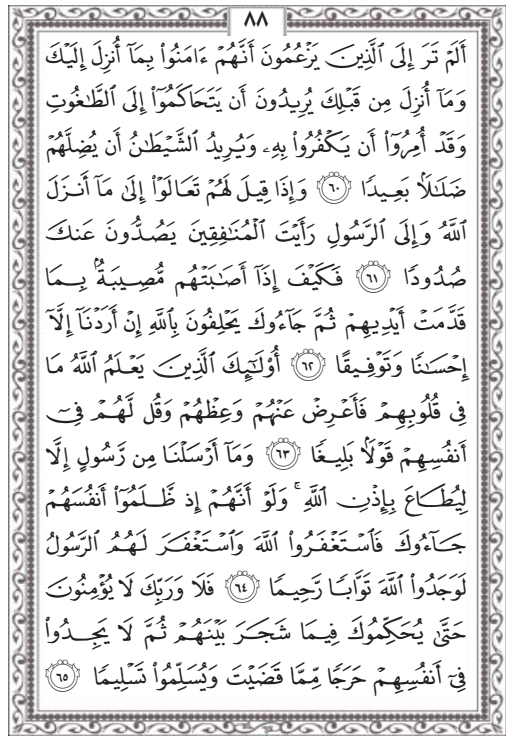 ٨٨
أَلَمْ تَرَ إِلَى ٱلَّذِينَ يَزْعُمُونَ أَنَّهُمْ ءَامَنُوا۟ بِمَآ أُنزِلَ إِلَيْكَ
وَمَآ أُنزِلَ مِن قَبْلِكَ يُرِيدُونَ أَن يَتَحَاكَمُوٓا۟ إِلَى ٱلطَّٰغُوتِ
وَقَدْ أُمِرُوٓا۟ أَن يَكْفُرُوا۟ بِهِۦ وَيُرِيدُ ٱلشَّيْطَٰنُ أَن يُضِلَّهُمْ
ضَلَٰلًۢا بَعِيدًا ٦٠ وَإِذَا قِيلَ لَهُمْ تَعَالَوْا۟ إِلَىٰ مَآ أَنزَلَ
ٱللَّهُ وَإِلَى ٱلرَّسُولِ رَأَيْتَ ٱلْمُنَٰفِقِينَ يَصُدُّونَ عَنكَ
صُدُودًا ٦١ فَكَيْفَ إِذَآ أَصَٰبَتْهُم مُّصِيبَةٌۢ بِمَا
قَدَّمَتْ أَيْدِيهِمْ ثُمَّ جَآءُوكَ يَحْلِفُونَ بِٱللَّهِ إِنْ أَرَدْنَآ إِلَّآ
إِحْسَٰنًا وَتَوْفِيقًا ٦٢ أُو۟لَٰٓئِكَ ٱلَّذِينَ يَعْلَمُ ٱللَّهُ مَا
فِى قُلُوبِهِمْ فَأَعْرِضْ عَنْهُمْ وَعِظْهُمْ وَقُل لَّهُمْ فِىٓ
أَنفُسِهِمْ قَوْلًۢا بَلِيغًا ٦٣ وَمَآ أَرْسَلْنَا مِن رَّسُولٍ إِلَّا
لِيُطَاعَ بِإِذْنِ ٱللَّهِ ۚ وَلَوْ أَنَّهُمْ إِذ ظَّلَمُوٓا۟ أَنفُسَهُمْ
جَآءُوكَ فَٱسْتَغْفَرُوا۟ ٱللَّهَ وَٱسْتَغْفَرَ لَهُمُ ٱلرَّسُولُ
لَوَجَدُوا۟ ٱللَّهَ تَوَّابًا رَّحِيمًا ٦٤ فَلَا وَرَبِّكَ لَا يُؤْمِنُونَ
حَتَّىٰ يُحَكِّمُوكَ فِيمَا شَجَرَ بَيْنَهُمْ ثُمَّ لَا يَجِدُوا۟
فِىٓ أَنفُسِهِمْ حَرَجًا مِّمَّا قَضَيْتَ وَيُسَلِّمُوا۟ تَسْلِيمًا ٦٥